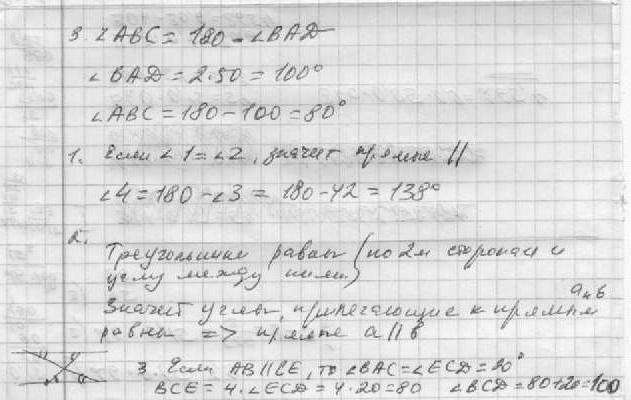 3. ∠ABC = 180 - ∠BAD
∠BAD = 2·50 = 100°
∠ABC = 180 - 100 = 80°
1. Если ∠1 = ∠2, значит прямые ||
∠4 = 180 - ∠3 = 180 - 42 = 138°
2.
Треугольники равны (по 2м сторонам и
углу между ними)
Значит углы, прилегающие к прямым a и b
равны => прямые a || b
3. Если AB || CE, то ∠BAC = ∠ECD = 20°
BCE = 4·∠ECD = 4·20 = 80 ∠BCD = 80+20=100